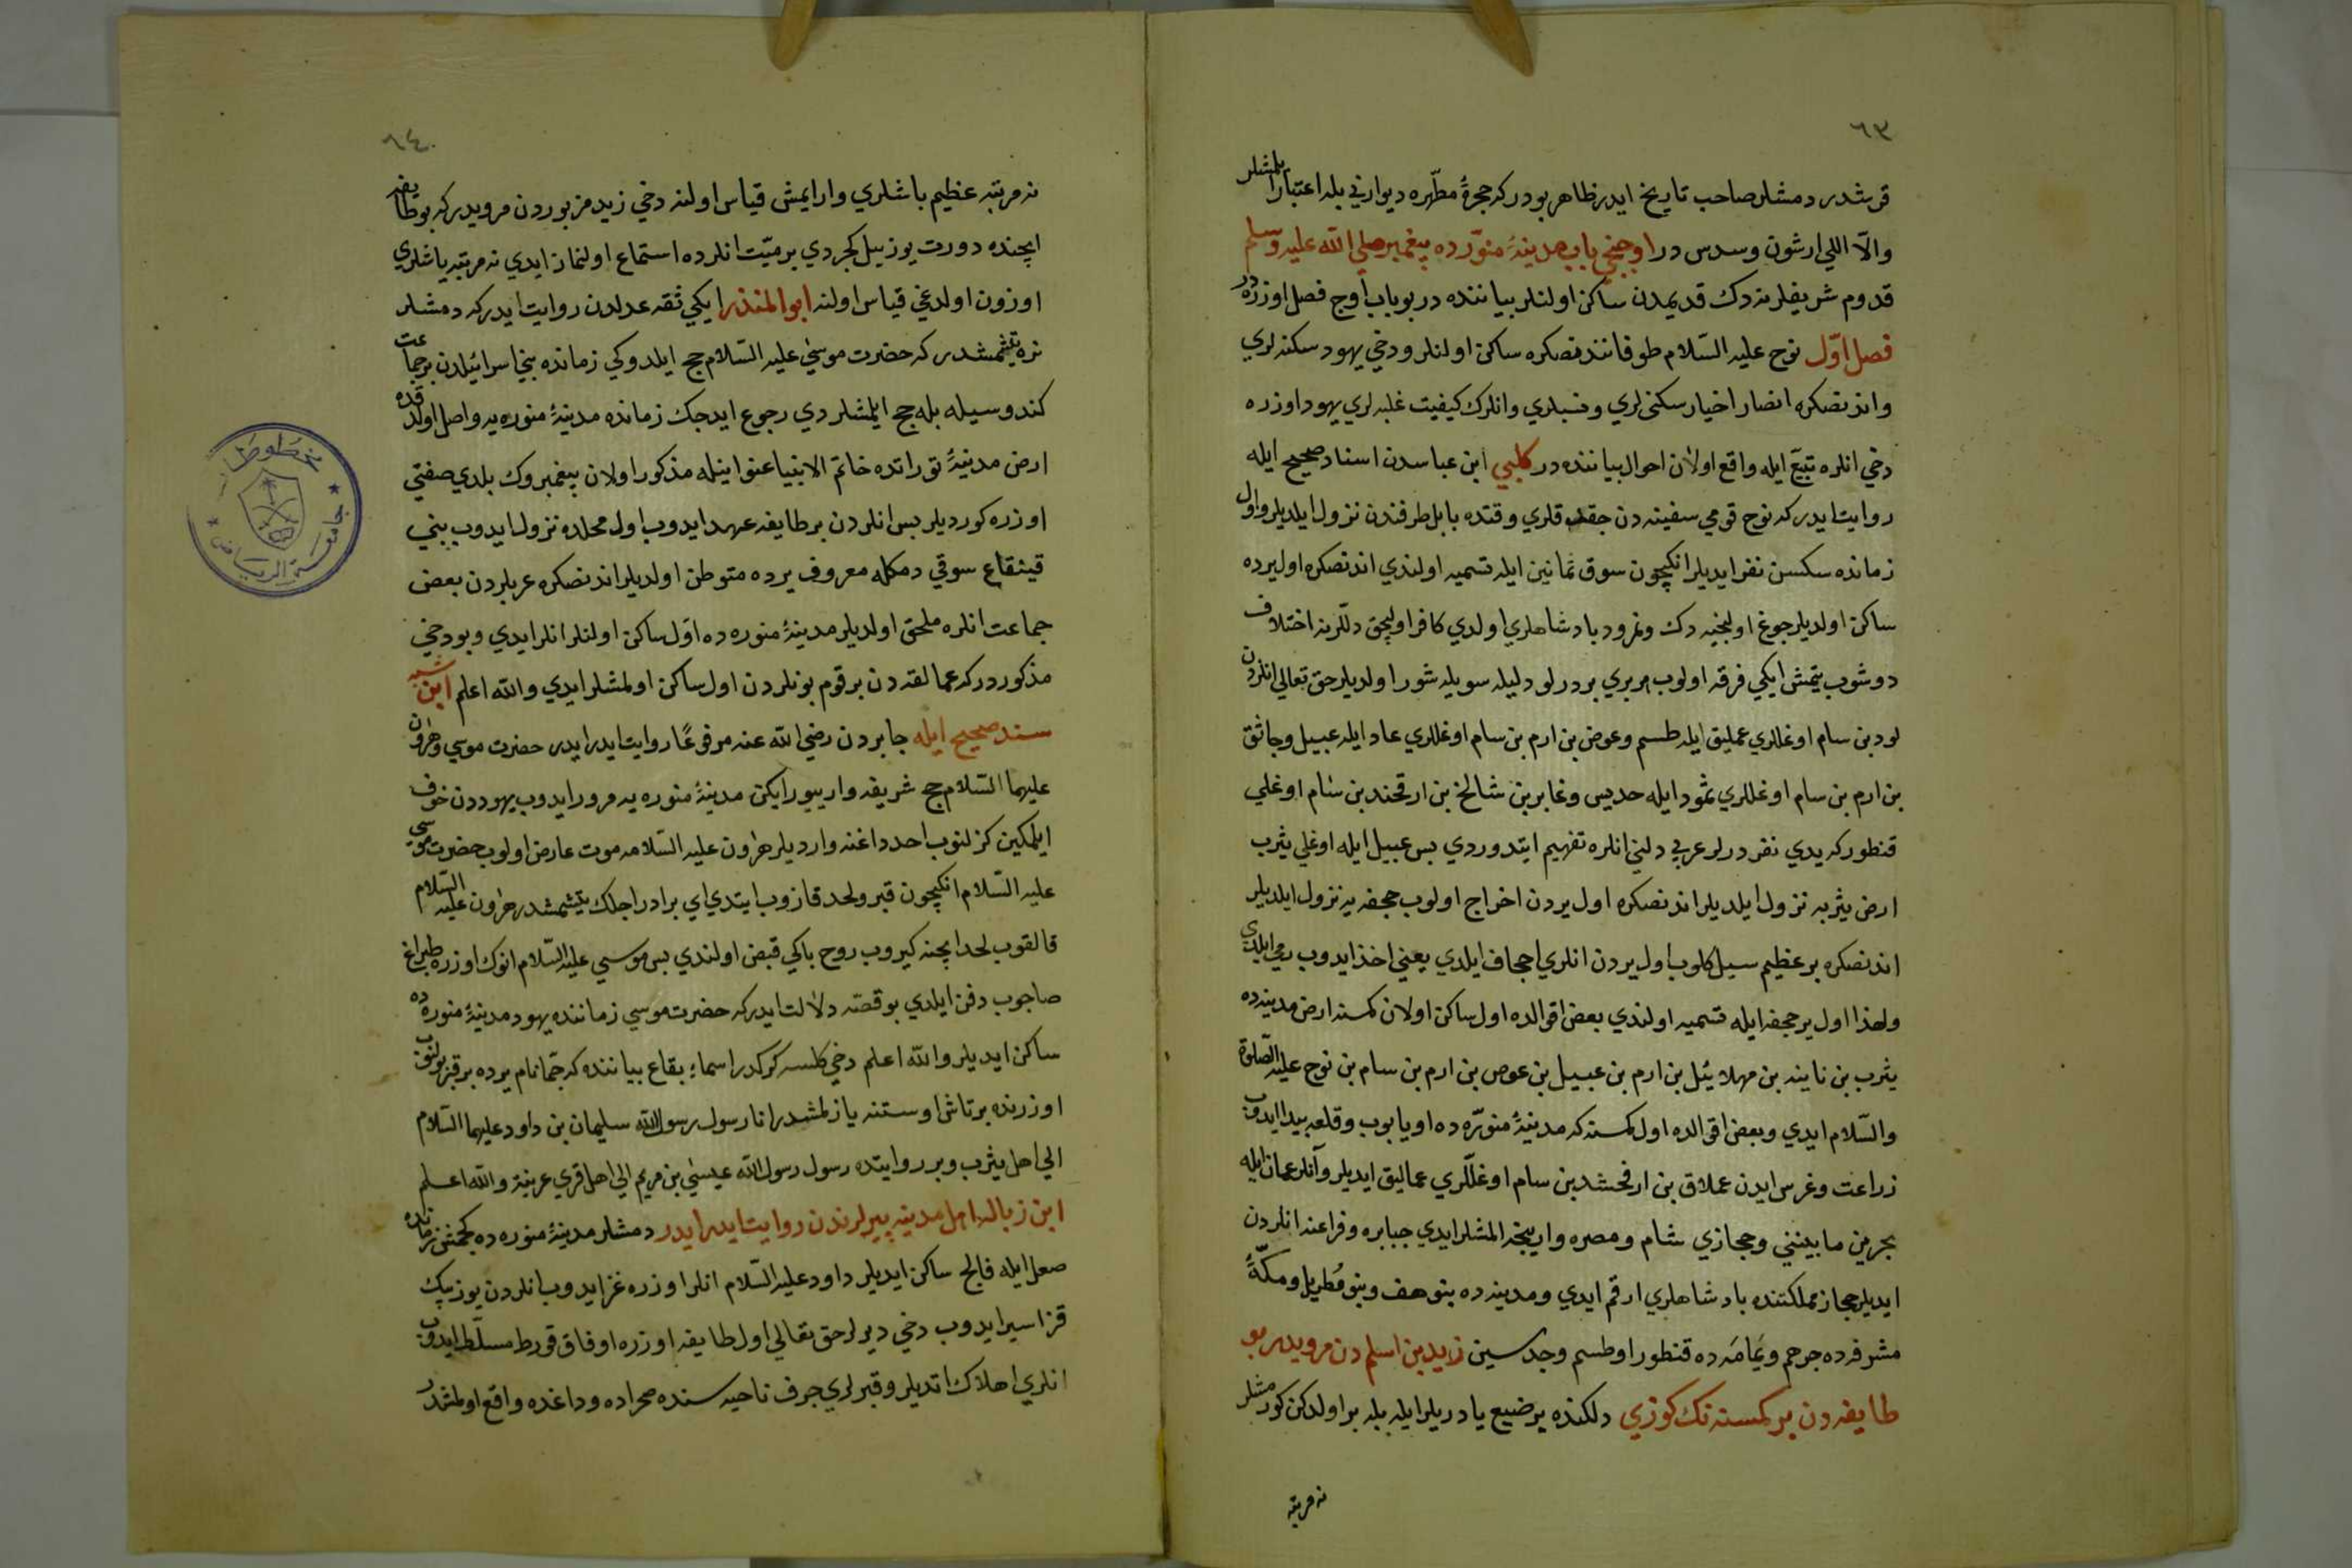 ٦٣
قرشدر دمشلر صاحب تاريخ ايدر ظاهر بودركه حجرۀ مطهّره ديواريني بله اعتبار ايلمشلر
والّا اللي ارشون وسدس در اوچنجي باب مدينۀ منوّرده پيغمبر صلي الله عليه وسلم
قدوم شريفلرينه دك قديمدن ساكن اولنلر بياننده در بو باب اوج فصل اوزره در
فصل اوّل نوح عليه السّلام طوفانندنصكره ساكن اولنلر ودخي يهود سكنه لري
واندنصكره انصار اخيار سكنى لري ونسبلري وانلرك كيفيت غلبه لري يهود اوزره
دخي انلره تبّع ايله واقع اولان احوال بياننده در كلبي ابن عباسدن اسناد صحيح ايله
روايت ايدركه نوح قومي سفينه دن جقدقلري وقتده بابل طرفندن نزول ايلديلر واول
زمانده سكسن نفر ايديلر انكچون سوق ثمانين ايله تسميه اولندي اندنصكره اول يرده
ساكن اولديلر جوغ اولنجيه دك ونمرود بادشاهلري اولدي كافر اوليجق دللرينه اختلاف
دوشوب يتمش ايكي فرقه اولوب هر بري بر درلو دليله سويلشور اولديلر حق تعالي انلردن
لود بن سام اوغللري عمليق ايله طسم وعوض بن ارم بن سام اوغللري عاد ايله عبيل وجاثق
بن ارم بن سام اوغللري ثمود ايله حديس وغابر بن شالخ بن ارقحند بن سام اوغلي
قنطور كه يدي نفردرلر عربي دلني انلره تفهيم ايتدوردي بس عبيل ايله اوغلي يثرب
ارض يثربه نزول ايلديلر اندنصكره اول يردن اخراج اولوب جحفه يه نزول ايلديلر
اندنصكره بر عظيم سيل كلوب اول يردن انلري اجحاف ايلدي يعني اخذ ايدوب رمي ايلدي
ولهذا اول ير جحفه ايله تسميه اولندي بعض اقوالده اول ساكن اولان كمسنه ارض مدينه ده
يثرب بن نايند بن مهلائيل بن ارم بن عبيل بن عوص بن ارم بن سام بن نوح عليه الصّلوة
والسّلام ايدي وبعض اقوالده اول كمسنه كه مدينۀ منوّره ده اويا بوب وقلعه بيدا ايدوب
زراعت وغرس ايدن عملاق بن ارفخشد بن سام اوغلّلري عماليق ايديلر وآنلر عمان ايله
بحرين مابينني وحجازي شام ومصره وارينجه المشلر ايدي جبابره وفراعنه انلردن
ايديلر حجاز مملكتنده بادشاهلري ارقم ايدي ومدينه ده بنو هف وبنو مُطريل ومكّۀ
مشرفه ده جرحم ويَمامَه ده قنطورا وطسم وجدسين زيد بن اسلم دن مرويدر بو
طايفه دن بر كمسنه نك كوزي دلكنده بر ضبع ياوريلر ايله بله بر اولدكن كورمشلر
نه مرتبه
٦٤
نه مرتبه عظيم باشلري وارايمش قياس اولنه دخي زيد مزبوردن مرويدركه بو طايفه
ايچنده دورت يوز ييل كجردي بر ميّت انلرده استماع اولنماز ايدي نه مرتبه ياشلري
اوزون اولدغي قياس اولنه ابو المنذر ايكي ثقه عدلدن روايت ايدركه دمشلر
بزه يتشمشدر كه حضرت موسي عليه السّلام حج ايلدوكي زمانده بني اسرائيلدن بر جماعت
كندوسيله بله حج ايلمشلردي رجوع ايدجك زمانده مدينۀ منوره يه واصل اولدقده
ارض مدينۀ توراتده خاتم الانبيا عنوانيله مذكور اولان پيغمبروك بلدي صفتي
اوزره كورديلر بس انلردن بر طايفه عهد ايدوب اول محلده نزول ايدوب بني
قينقاع سوقي دمكله معروف يرده متوطن اولديلر اندنصكره عربلردن بعض
جماعت انلره ملحق اولديلر مدينۀ منوره ده اوّل ساكن اولنلر انلر ايدي وبو دخي
مذكوردركه عمالقه دن بر قوم بونلردن اول ساكن اولمشلر ايدي والله اعلم ابن شيبه
سند صحيح ايله جابردن رضي الله عنه مرفوعًا روايت ايدر ايدر حضرت موسي وهرون
عليهما السّلام حج شريفه وارييورايكن مدينۀ منوره يه مرور ايدوب يهوددن خوف
ايلمكين كزلنوب احد داغنه وارديلر هرون عليه السّلامه موت عارض اولوب حضرت موسي
عليه السّلام انكچون قبر ولحد قازوب ايتدي اي برادر اجلك يتشمشدر هرون عليه السّلام
قالقوب لحد ايچنه كيروب روح باكي قبض اولندي بس موسي عليه السّلام انوك اوزره طبراغ
صاجوب دفن ايلدي بو قصّه دلالت ايدركه حضرت موسي زماننده يهود مدينۀ منوره ده
ساكن ايديلر والله اعلم دخي كلسه كركدر اسماء بقاع بياننده كه جمّا نام يرده بر قبر بولنوب
اوزرنده بر تاش اوستنه يازلمشدر انا رسول رسول الله سليمان بن داود عليهما السّلام
الي اهل يثرب وبر روايتده رسول رسول الله عيسي بن مريم الي اهل قري عرينة والله اعلم
ابن زباله اهل مدينه پيرلرندن روايت ايدر ايدر دمشلر مدينۀ منوره ده كچمش زمانده
صعل ايله فالح ساكن ايديلر داود عليه السّلام انلر اوزره غزا ايدوب انلردن يوز بيك
قز اسير ايدوب دخي ديرلر حق تعالي اول طايفه اوزره اوفاق قورط مسلّط ايدوب
انلري اهلاك اتديلر وقبرلري جرف ناحيه سنده صحراده وداغده واقع اولمشدر
مخطوطات
جامعة الرياض